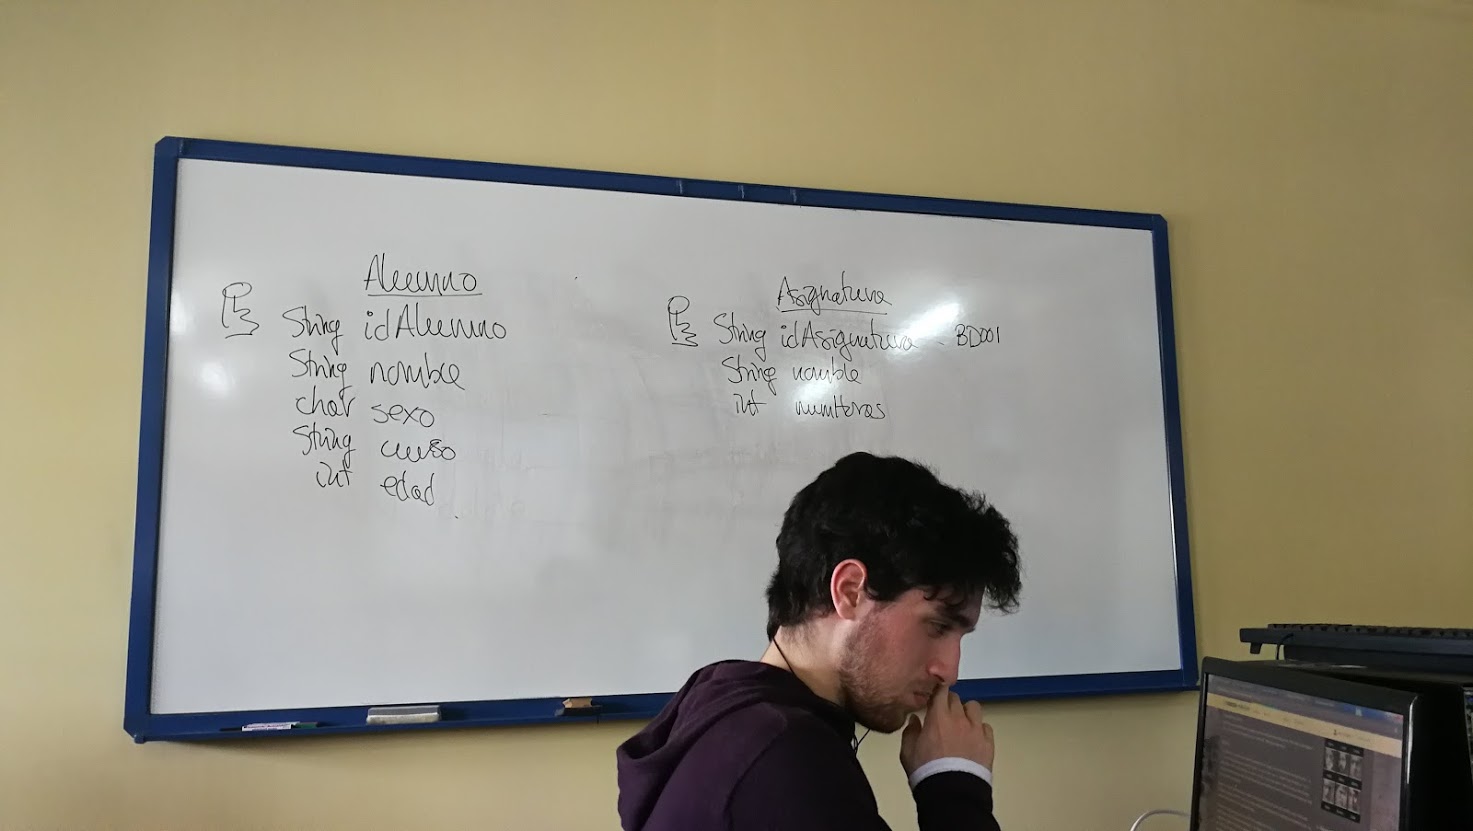 Alumno
String idAlumno
String nombre
char sexo
String curso
int edad
Asignatura
String idAsignatura - BD001
String nombre
int numHoras